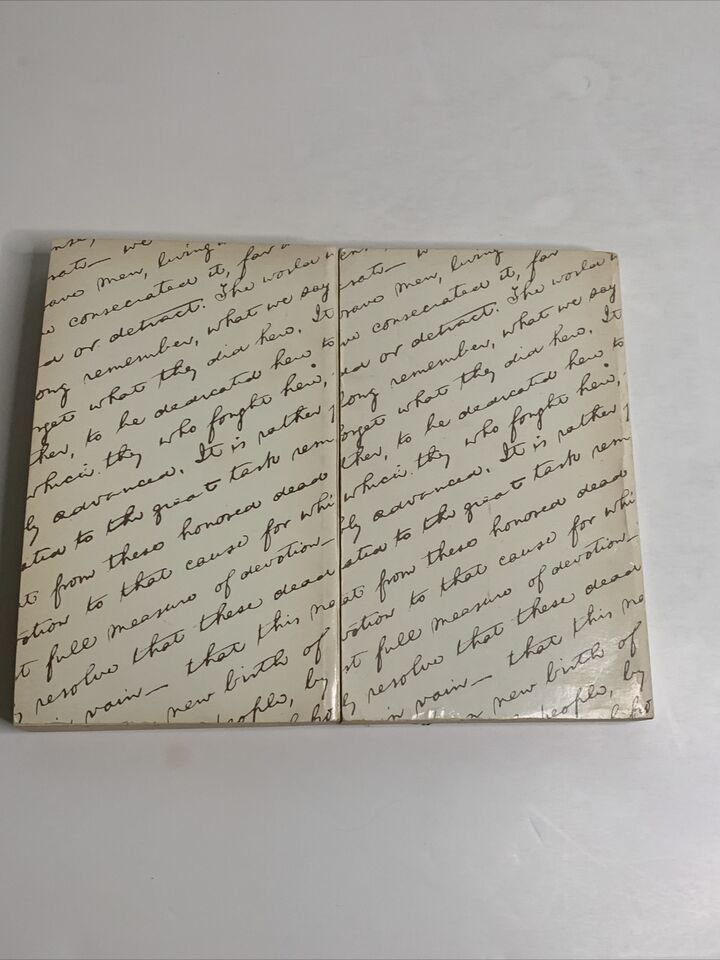 nse,
sate— we
rave men, living
e consecrated it, far a
d or detract. The world
ong remember, what we say
rget what they did here. It
her, to be dedicated here to
which they who fought here,
ly advanced. It is rather
ated to the great task rem
t from these honored dead
otion to that cause for whi
t full measure of devotion—
resolve that these dead
vain— that this na
new birth of
eople, by
en.
sate— w
rave men, living
we consecrated it, far
d or detract. The world w
long remember, what we say
orget what they did here. It
ther, to be dedicated here to
which they who fought here,
ly advanced. It is rather
ated to the great task rem
at from these honored dead
votion to that cause for whi
st full measure of devotion—
resolve that these dead
n vain— that this na
new birth of
eople, by